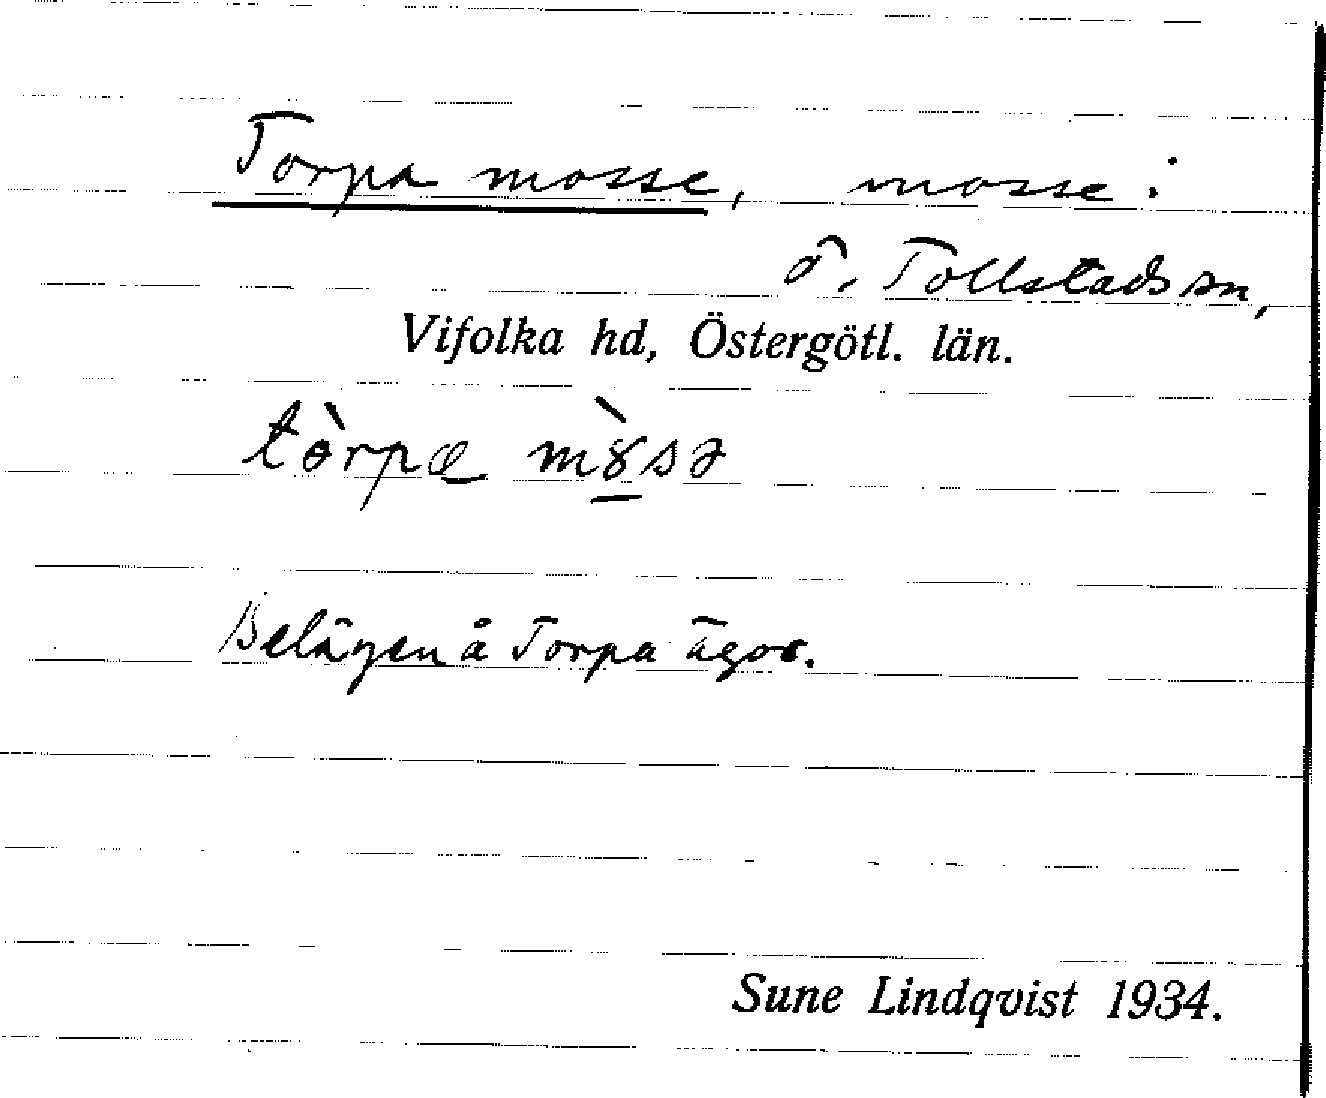 Torpa mosse, mosse i
Ö. Tollstads sn,
Vifolka hd, Östergötl. län.
tòrpæ
Belägen å Torpa ägor.
Sune Lindqvist 1934.